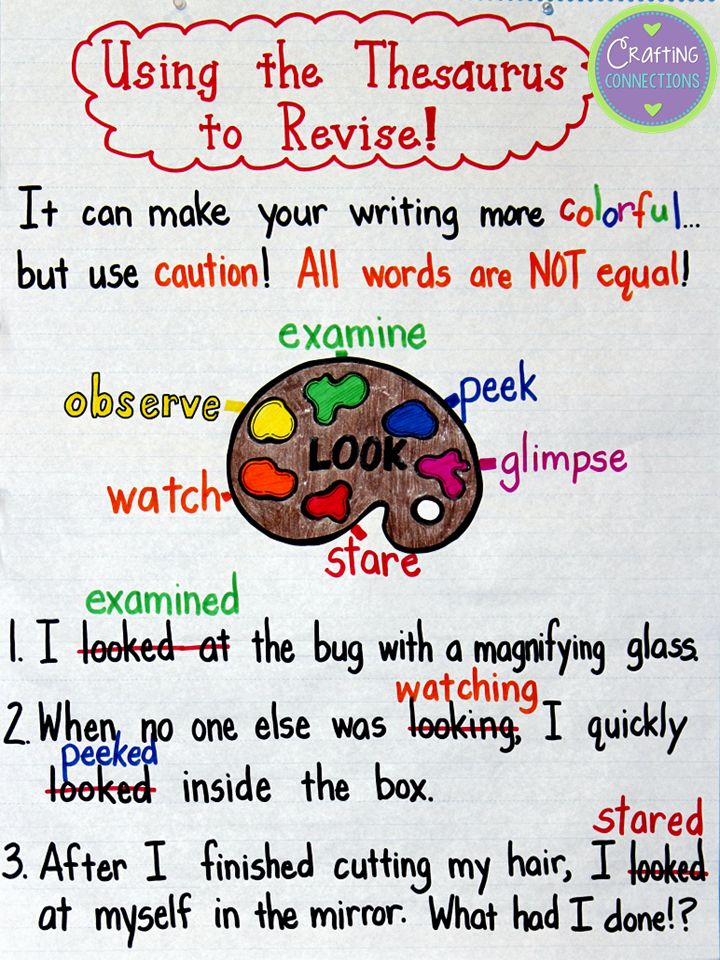 Using the Thesaurus
to Revise!
Crafting
CONNECTIONS
It can make your writing more colorful...
but use caution! All words are NOT equal!
examine
observe
peek
LOOK
glimpse
watch
stare
examined
1. I looked at the bug with a magnifying glass.
watching
2. When no one else was looking, I quickly
peeked
looked inside the box.
stared
3. After I finished cutting my hair, I looked
at myself in the mirror. What had I done!?